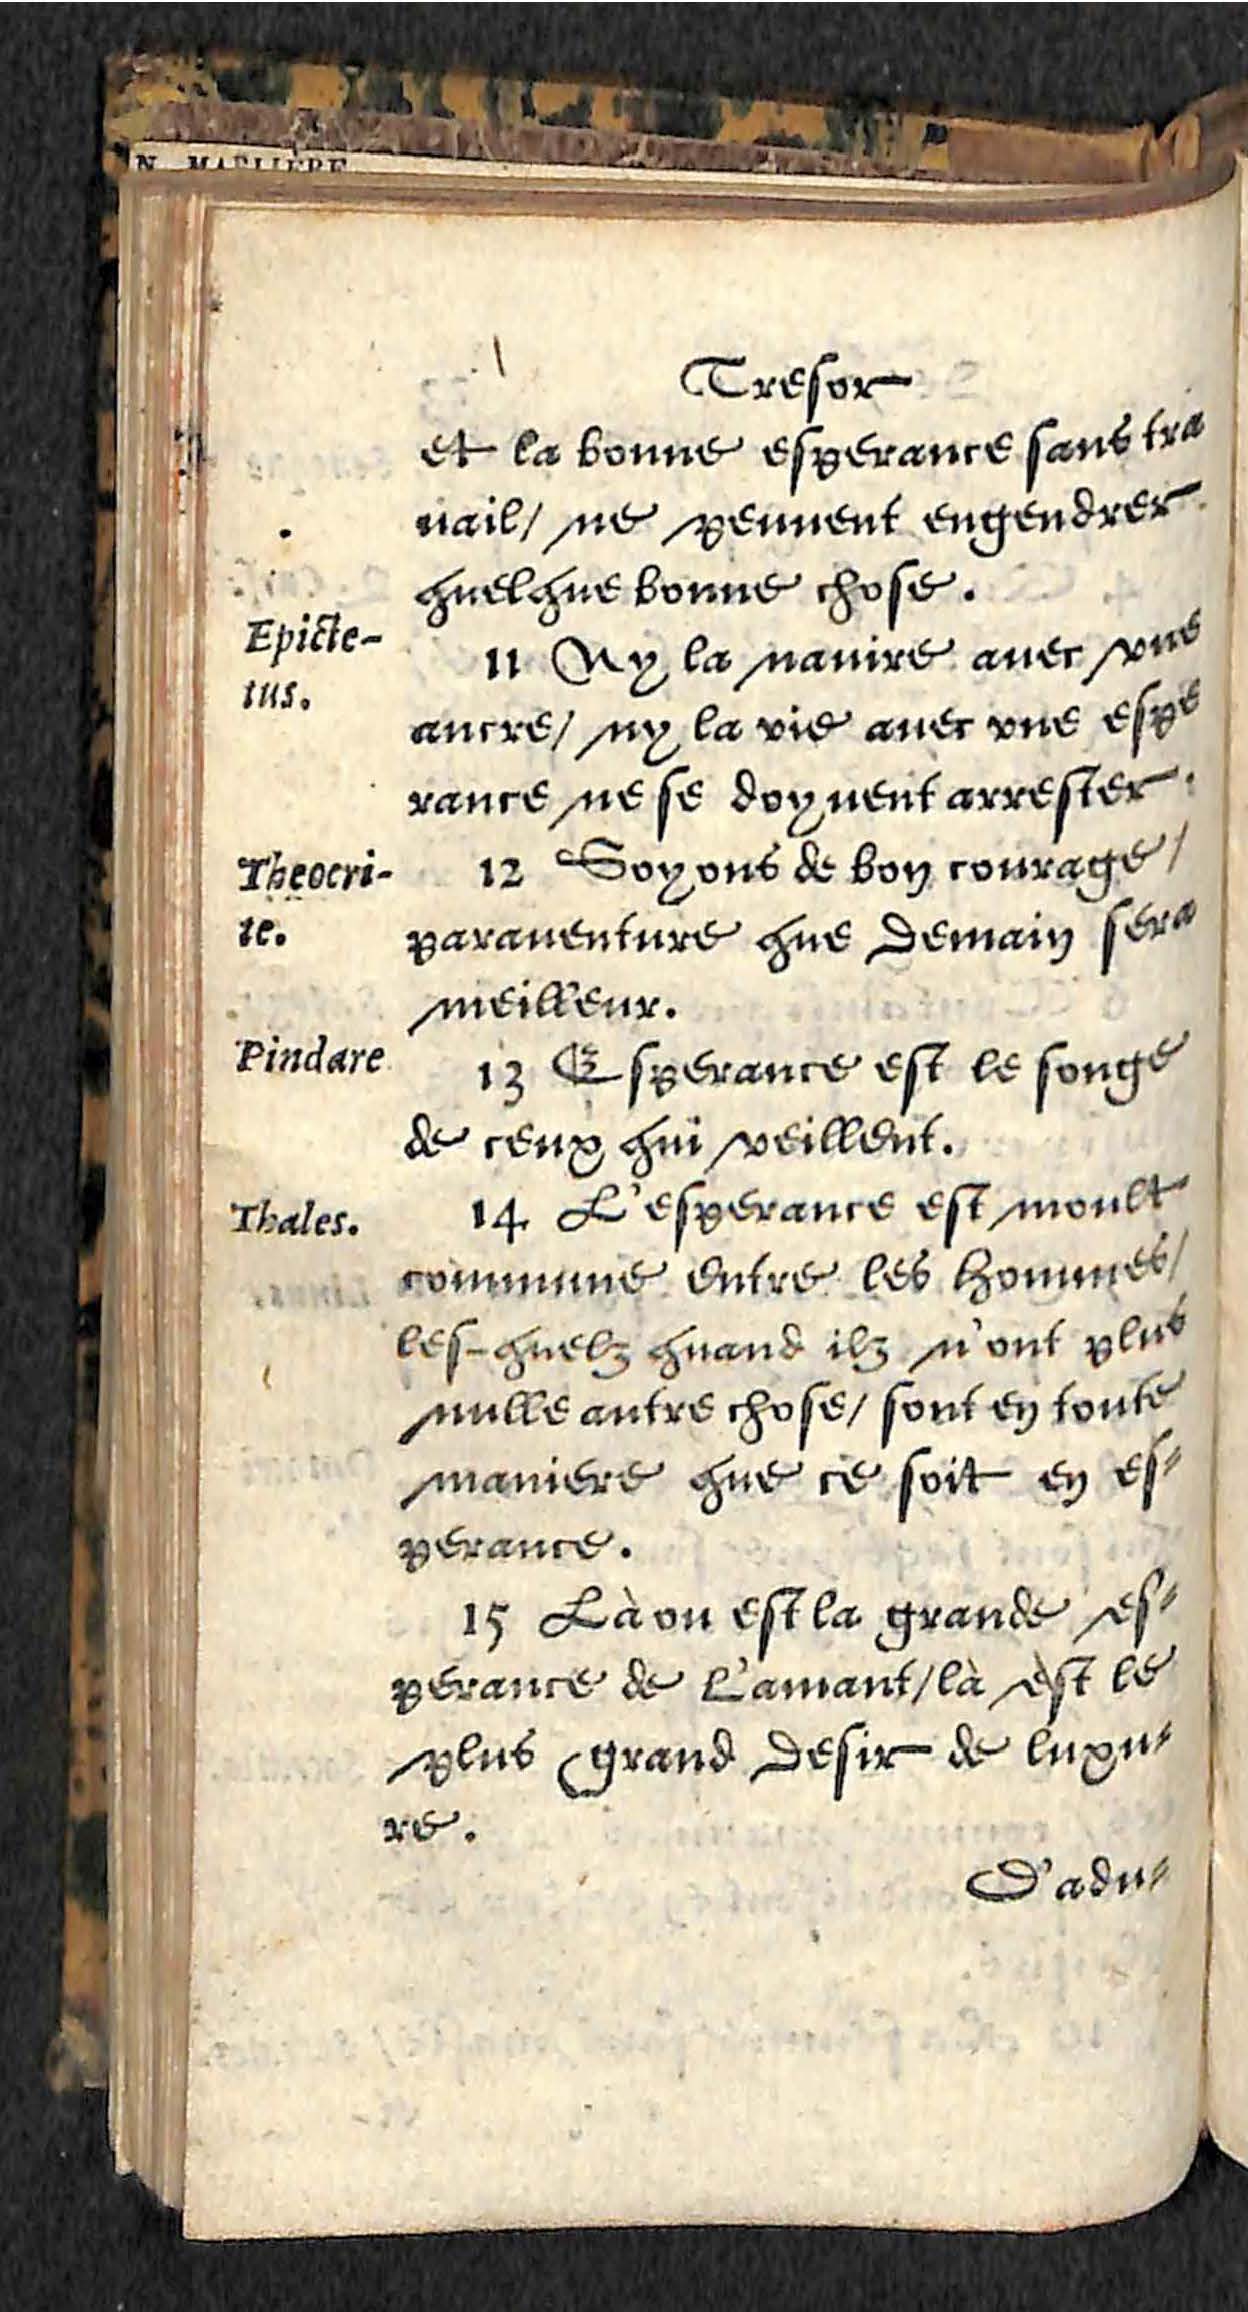 N MAELIERE
Tresor
et la bonne esperance sans tra
uail/ ne peuuent engendrer
quelque bonne chose.
Epicte-
tus.
11 Ny la nauire auec vne
ancre/ ny la vie auec vne espe
rance ne se doyuent arrester.
Theocri-
te.
12 Soyons de bon courage/
parauenture que demain sera
meilleur.
Pindare
13 Esperance est le songe
de ceux qui veillent.
Thales.
14 L'esperance est moult
commune entre les hommes/
les-quelz quand ilz n'ont plus
nulle autre chose/ sont en toute
maniere que ce soit en es-
perance.
15 Là ou est la grande es-
perance de l'amant/ là est le
plus grand desir de luxu-
re.
D'adu-